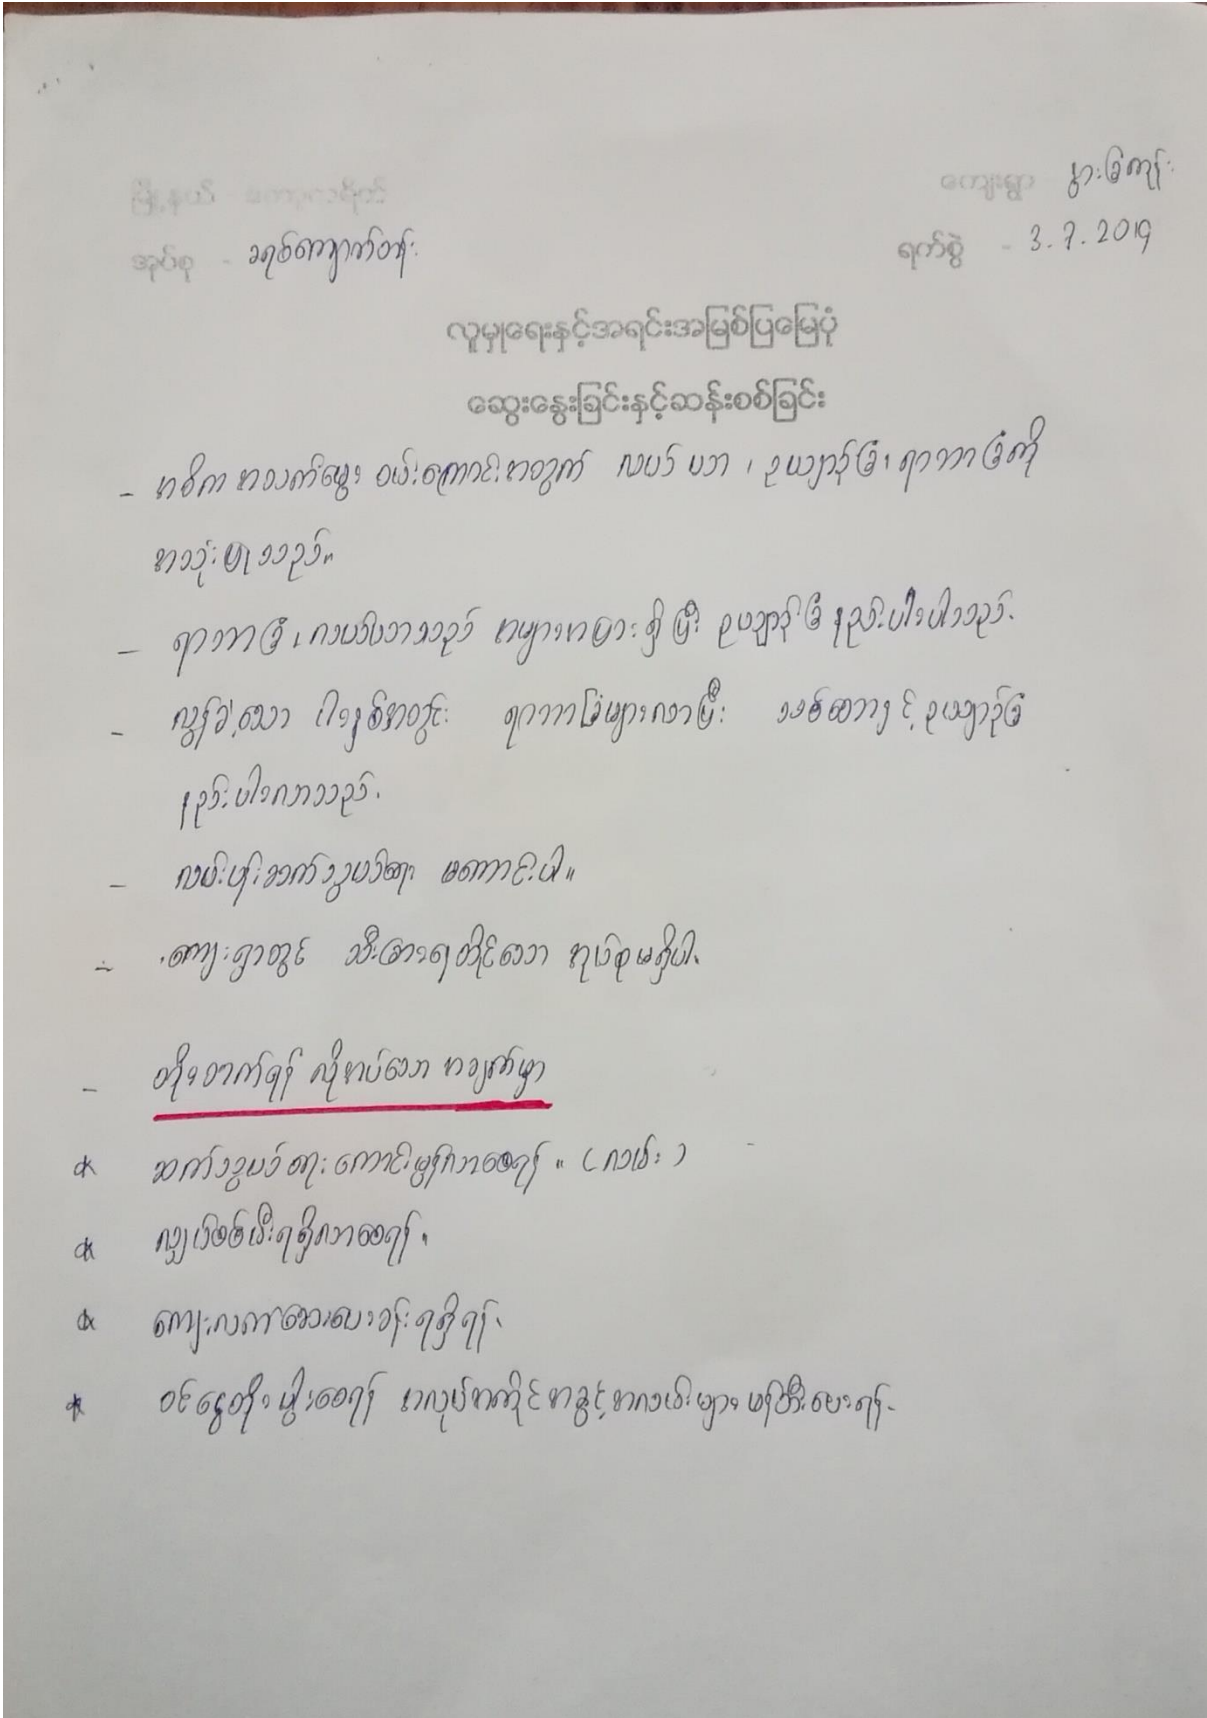 မြို့နယ် - ကော့ကရိတ် ကျေးရွာ နွားခြံကုန်း
အုပ်စု - ခရစ်ကျောက်တန်း ရက်စွဲ - 3.7.2019
လူမှုရေးနှင့်အရင်းအမြစ်ပြမြေပုံ
ဆွေးနွေးခြင်းနှင့်ဆန်းစစ်ခြင်း
- အဓိက အသက်မွေး ဝမ်းကျောင်းအတွက် လယ် ယာ ၊ ဥယျာဉ်ခြံ ၊ ရာဘာခြံကို
အသုံးပြုသည်။
- ရာဘာခြံ ၊ လယ်ယာသည် အများအပြားရှိပြီး ဥယျာဉ်ခြံ နည်းပါးပါသည်.
- လွန်ခဲ့သော ငါးနှစ်အတွင်း ရာဘာခြံများလာပြီး သစ်တောနှင့် ဥယျာဉ်ခြံ
နည်းပါးလာသည်.
- လမ်းပန်းဆက်သွယ်ရေး မကောင်းပါ။
- ကျေးရွာတွင် သီးခြားရပ်တိုင်သော အုပ်စုမရှိပါ.
- တိုးတက်ရန် လိုအပ်သော အချက်မှာ
* ဆက်သွယ်ရေး ကောင်းမွန်လာစေရန် ။ ( လမ်း )
* လျှပ်စစ်မီးရရှိလာစေရန် .
* ကျေးလက်ဆေးပေးခန်းရရှိရန်.
* ဝင်ငွေတိုးပွါးစေရန် အလုပ်အကိုင်အခွင့်အလမ်းများ ဖန်တီးပေးရန်.